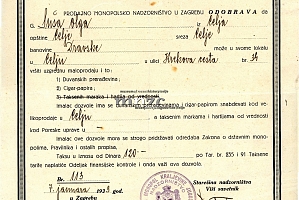 PRODAJNO MONOPOLSKO NADZORNIŠTVO U ZAGREBU ODOBRAVA
G. Susa Olga iz Celja
opštine Celje sreza Celje
banovine Dravske da može u svome lokalu
u Celju Kirkova cesta br. 39
vršiti uzgrednu maloprodaju i to:
1) Duvanskih prerađevina;
2) Cigar-papira;
3) Taksenih maraka i hartija od vrednosti
Imalac dozvole ima se cigar-papirom snabdevati kod veliko-
prodaje u Celju a taksenim markama i hartijama od vrednosti
kod Poreske uprave
Imalac dozvole mora se strogo pridržavati odredaba Zakona o državnim mono-
polima, Pravilnika i ostalih propisa.
Taksa u iznosu od Dinara 120.- po Tar. br. 835 i 91 Taksene
tarife naplatiće Odeljak finansiske kontrole i onda važi ova dozvola.
Br. 113
7. januara 1939 god.
u Zagrebu
Starešina nadzorništva
Viši savetnik